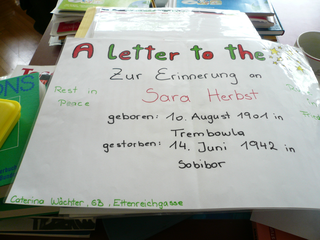 A letter to the
Zur Erinnerung an
Sara Herbst
Rest in
Peace
geboren: 10. August 1901 in
Trembowla
gestorben: 14. Juni 1942 in
Sobibor
Caterina Wächter, 6B, Ettenreichgasse